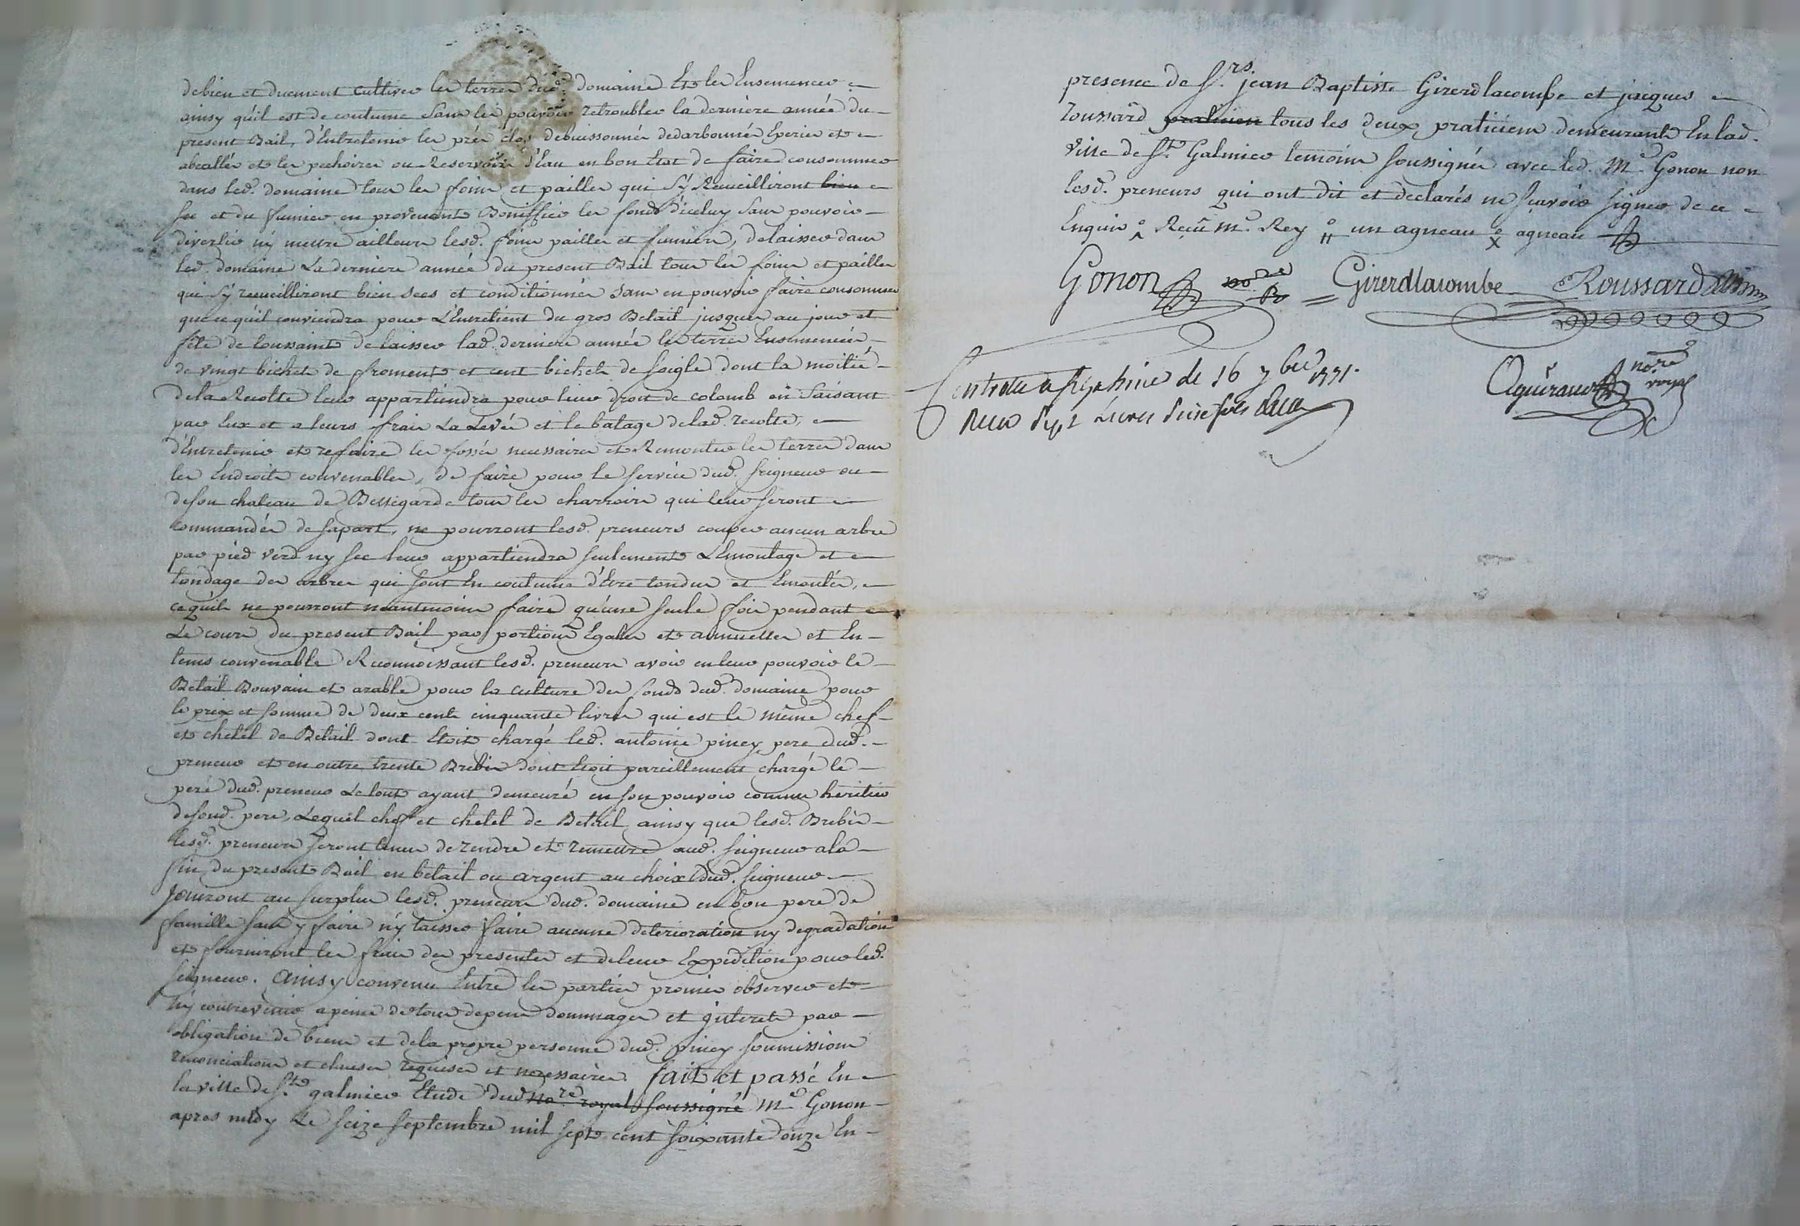 debien et duement cultiver les terres dud. domaine Et les Ensemencer
ainsy quil est de coutume sans les pouvoir retroubler la derniere année du
present Bail, d'Entretenir les prés clos debuissonnés dedarbonnés Eperés et
abeallés et les pechoires ou Reservoirs d'Eau en bon Etat de faire consommer
dans led. domaine tous les foins et pailles qui s'y Recueilliront bien
sec et du fumier en provenant Boniffier les fonds d'iceluy sans pouvoir
divertir ny mettre ailleurs lesd. foins pailles et fumiers, delaisser dans
led. domaine La derniere année du present Bail tous les foins et pailles
qui s'y recueilliront bien secs et conditionnés sans en pouvoir faire consommer
que ce quil conviendra pour L'Entretient du gros Betail jusques au jour et
fête de toussaint delaisser lad. derniere année les terres Ensemencées
de vingt bichets de froment et cent bichets de seigle dont la moitié
dela Recolte leur appartiendra pour leur droit de colomb en faisant
par Eux et a leurs frais La Levée et le batage delad. recolte,
d'Entretenir et refaire les fossés necessaires et Remonter les terres dans
les Endroits convenables, de faire pour le service dud. seigneur ou
deson chateau de Bessegarde tous les charrois qui leur seront
commandés de sapart, ne pourront lesd. preneurs couper aucun arbre
par pied verd ny sec leur appartiendra seulement L'Emontage et
tondage des arbres qui sont En coutume d'Etre tondus et Emontés,
ce quils ne pourront neantmoins faire qu'une seule fois pendant
Le cours du present Bail par portions Egales et annuelles et En
tems convenable Reconnoissant lesd. preneurs avoir enleur pouvoir le
Betail Bouvain et arable pour la culture des fonds dud. domaine pour
le prix et somme de deux cents cinquante livres qui est le même chef
et chetel de Betail dont Etoit chargé led. antoine piney pere dud.
preneur et en outre trente Brebis dont Etoit pareillement chargé le
pere dud. preneur Le tout ayant demeuré en son pouvoir comme heritier
desond. pere, Lequel chef et chetel de Betail ainsy que lesd. Brebis
lesd. preneurs seront tenus de rendre et remettre aud. seigneur ala
fin du present Bail en betail ou argent au choix dud. seigneur
Jouiront au surplus lesd. preneurs dud. domaine en bon pere de
famille sans y faire n'y laisser faire aucune deterioration ny degradation
et fourniront les frais des presentes et deleur Expedition pour led.
seigneur. Ainsy convenu Entre les parties promis observer et
n'y contrevenir apeine detous depens dommages et interets par
obligation de biens et dela propre personne dud. piney soumissions
renonciations et clauses requises et necessaires. fait et passé En
la ville de St. galmier Etude dud. no.re royal soussigné Me. Gonon
apres midy Le seize septembre mil sept cent soixante onze En
presence de Srs. jean Baptiste Girerdlacombe et jacques
roussard praticien tous les deux praticiens demeurants En lad.
ville de St. Galmier temoins soussignés avec led. Me. Gonon non
lesd. preneurs qui ont dit et declarés ne sçavoir signer de ce
Enquis Reçu me. Rey un agneau agneau
Gonon Girerdlacombe Roussard
Controlé a St. galmier le 16 7bre 1771.
Recu sept Livres
no.re royal